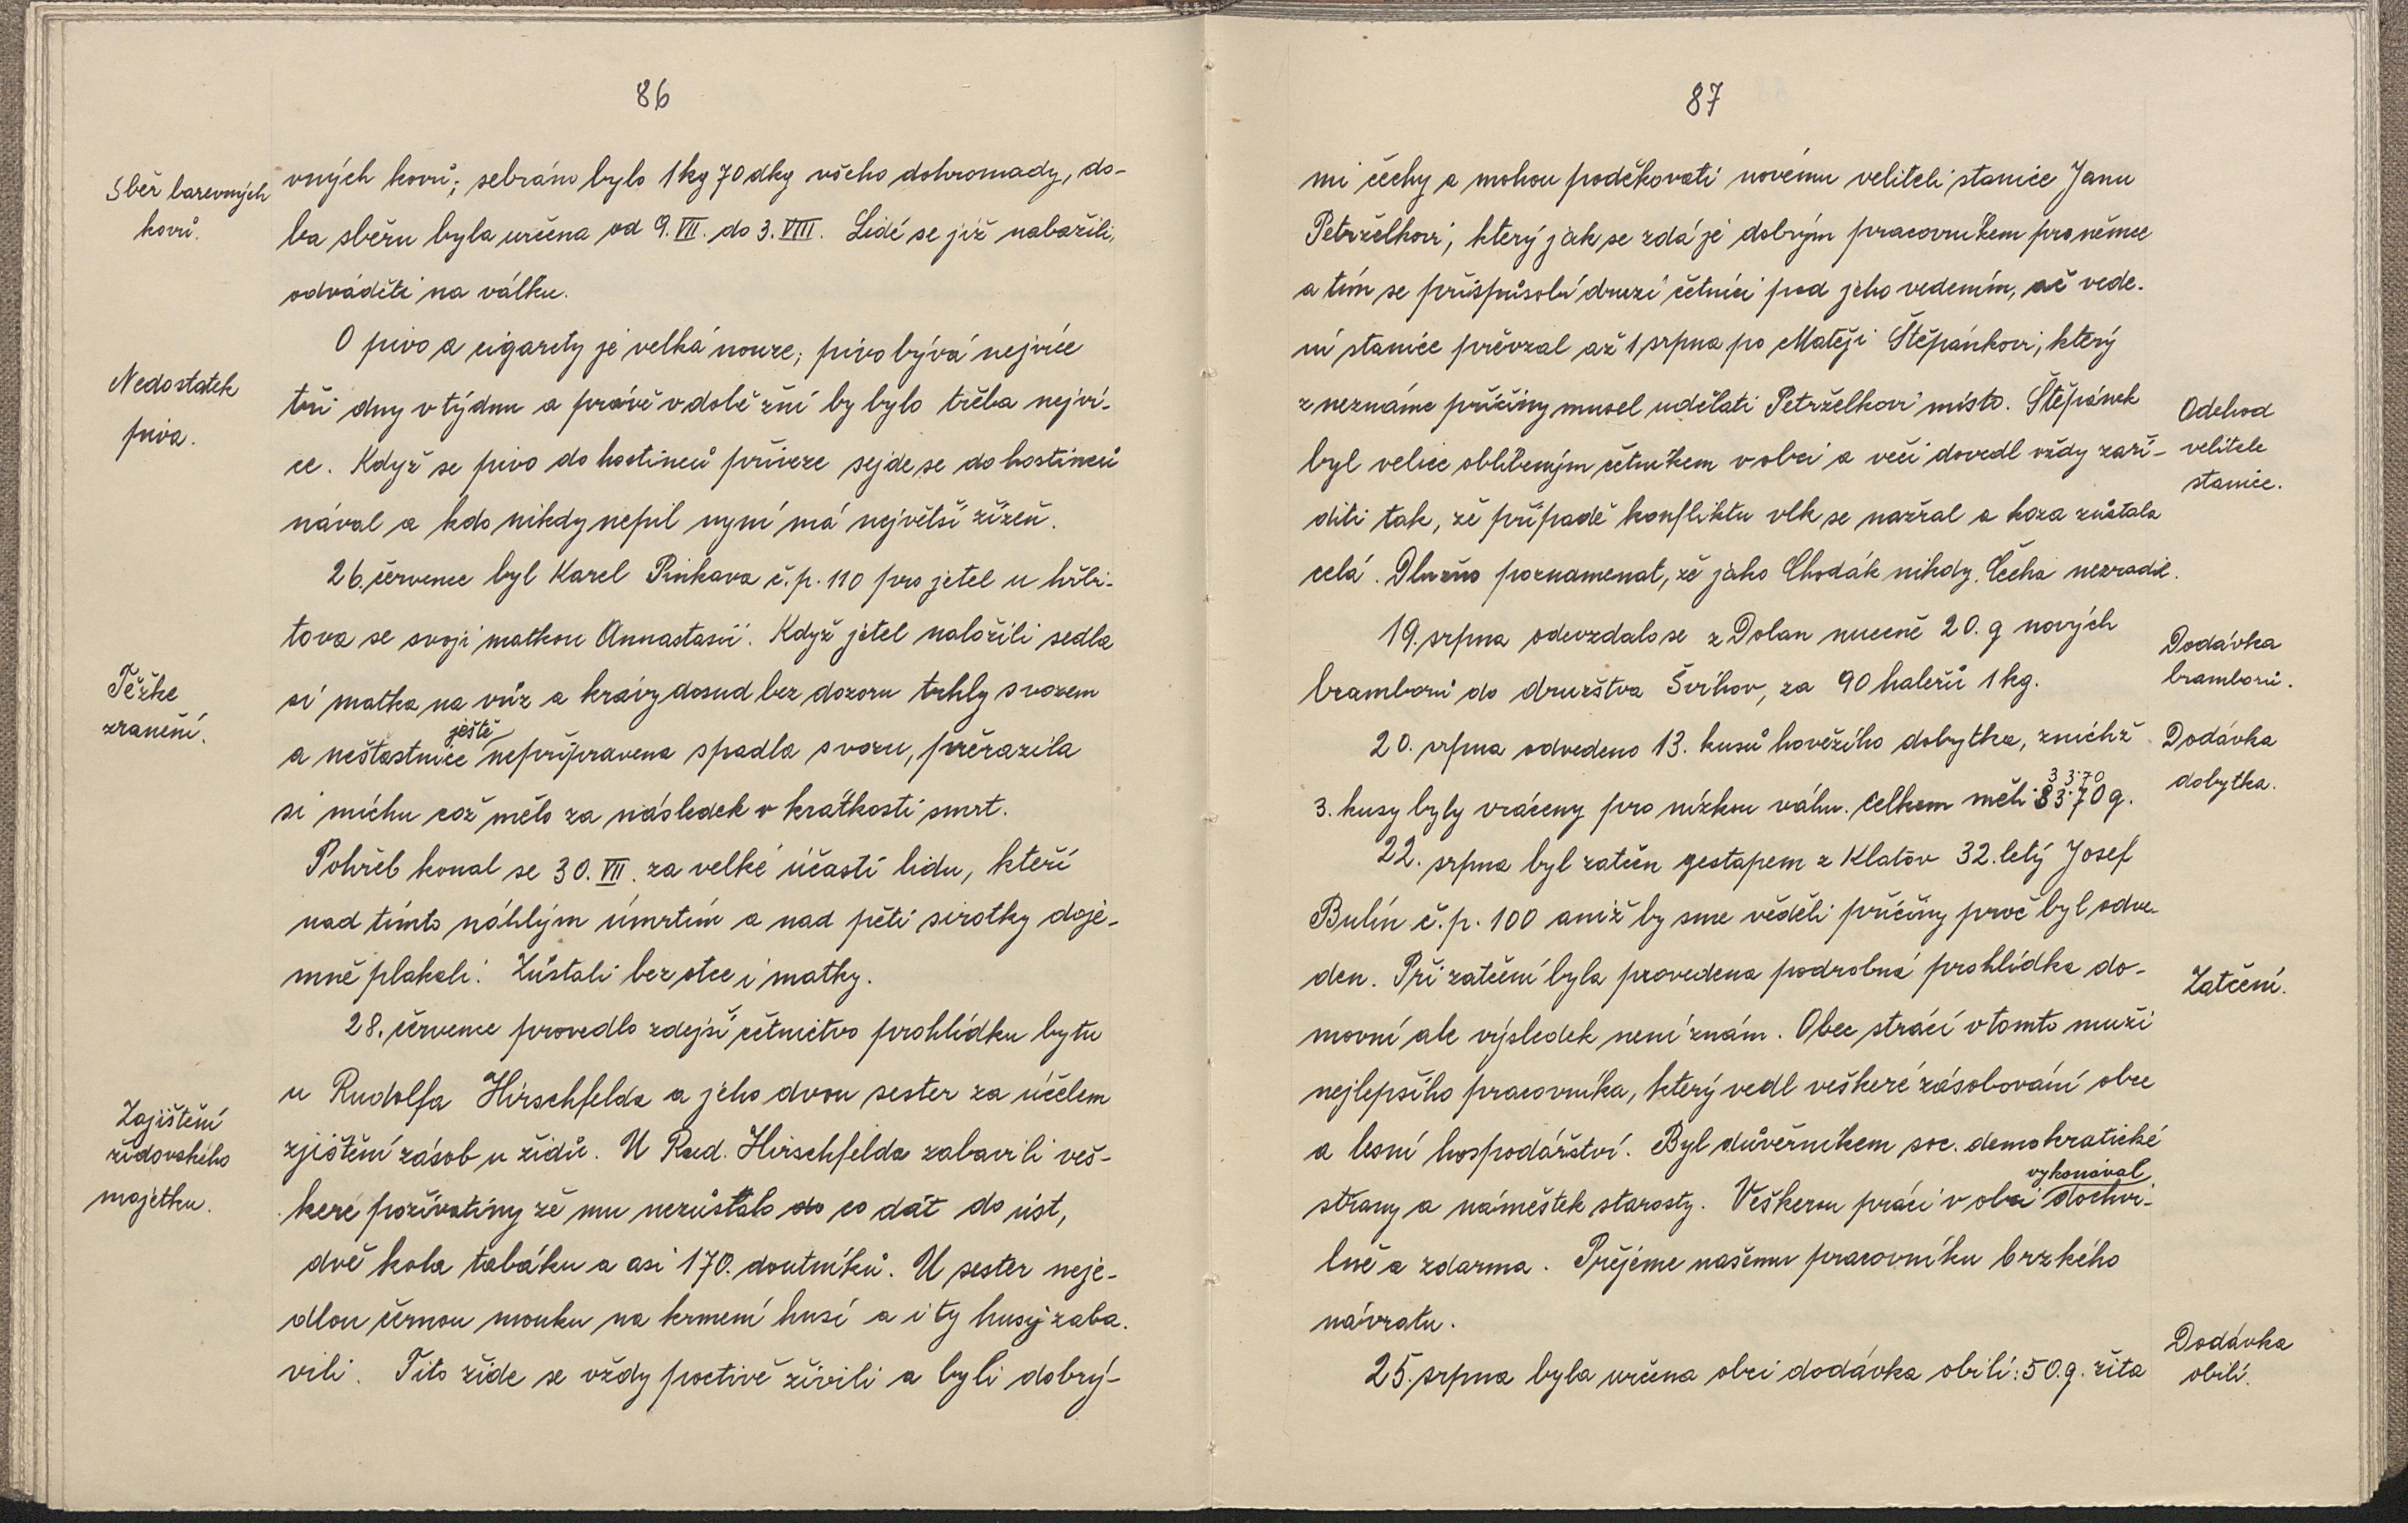 86
Sběr barevných
kovů.
vných kovů; sebráno bylo 1 kg 70 dkg všeho dohromady, do-
ba sběru byla určena od 9. VII. do 3. VIII. Lidé se již nabažili,
odváděti na válku.
Nedostatek
piva.
O pivo a cigarety je velká nouze; pivo bývá nejvíce
tři dny v týdnu a právě v době žní by bylo třeba nejví-
ce. Když se pivo do hostinců přiveze sejde se do hostinců
nával a kdo nikdy nepil nyní má největší žízeň.
Těžke
zranění.
26. července byl Karel Pinkava č.p. 110 pro jetel u hřbi-
tova se svoji matkou Annastasií. Když jetel naložili sedla
si matka na vůz a krávy dosud bez dozoru trhly s vozem
ještě
a neštastnice nepřipravena spadla s vozu, přerazila
si míchu což mělo za následek v krátkosti smrt.
Pohřeb konal se 30. VII. za velké účasti lidu, kteří
nad tímto náhlým úmrtím a nad pěti sirotky doje-
mně plakali. Zůstali bez otce i matky.
Zajištění
židovského
majetku.
28. července provedlo zdejší četnictvo prohlídku bytu
u Rudolfa Hirschfelda a jeho dvou sester za účelem
zjištění zásob u židů. U Rud. Hirschfelda zabavili veš-
keré poživatiny že mu nezůstalo do co dát do úst,
dvě kola tabáku a asi 170. doutníků. U sester neje-
dlou černou mouku na krmení husí a i ty husy zaba-
vili. Tito židé se vždy poctivě živili a byli dobrý-
87
mi čechy a mohou poděkovati novému veliteli stanice Janu
Petrželkovi, který jak se zdá je dobrým pracovníkem pro němce
a tím se přispůsobí druzí četníci pod jeho vedením, ač vede-
ní stanice převzal až 1 srpna po Matěji Štěpánkovi, který
z neznáme příčiny musel udělati Petrželkovi místo. Štěpánek
byl velice oblíbeným četníkem v obci a věci dovedl vždy zaří-
diti tak, že případě konfliktu vlk se nažral a koza zůstala
celá. Dlužno poznamenat, že jako Chodák nikdy Čecha nezradil.
Odchod
velitele
stanice.
19. srpna odevzdalo se z Dolan nuceně 20. q nových
bramborů do družstva Švihov, za 90 haleřů 1 kg.
Dodávka
bramborů.
20. srpna odvedeno 13. kusů hovězího dobytka, z nichž
33.70
3. kusy byly vráceny pro nízkou váhu. Celkem měli 33.70 q.
Dodávka
dobytka.
22. srpna byl zatčen gestapem z Klatov 32. letý Josef
Bulín č.p. 100 aniž by sme věděli příčiny proč byl odve-
den. Při zatčení byla provedena podrobná prohlídka do-
movní ale výsledek není znám. Obec strácí v tomto muži
nejlepšího pracovníka, který vedl veškeré zásobování obce
a lesní hospodářství. Byl důvěrníkem soc. demokratické
vykonával
strany a náměstek starosty. Veškerou práci v obci dochvi-
lně a zdarma. Přejeme našemu pracovníku brzkého
návratu.
Zatčení.
25. srpna byla určena obci dodávka obilí: 50. q. žita
Dodávka
obilí.